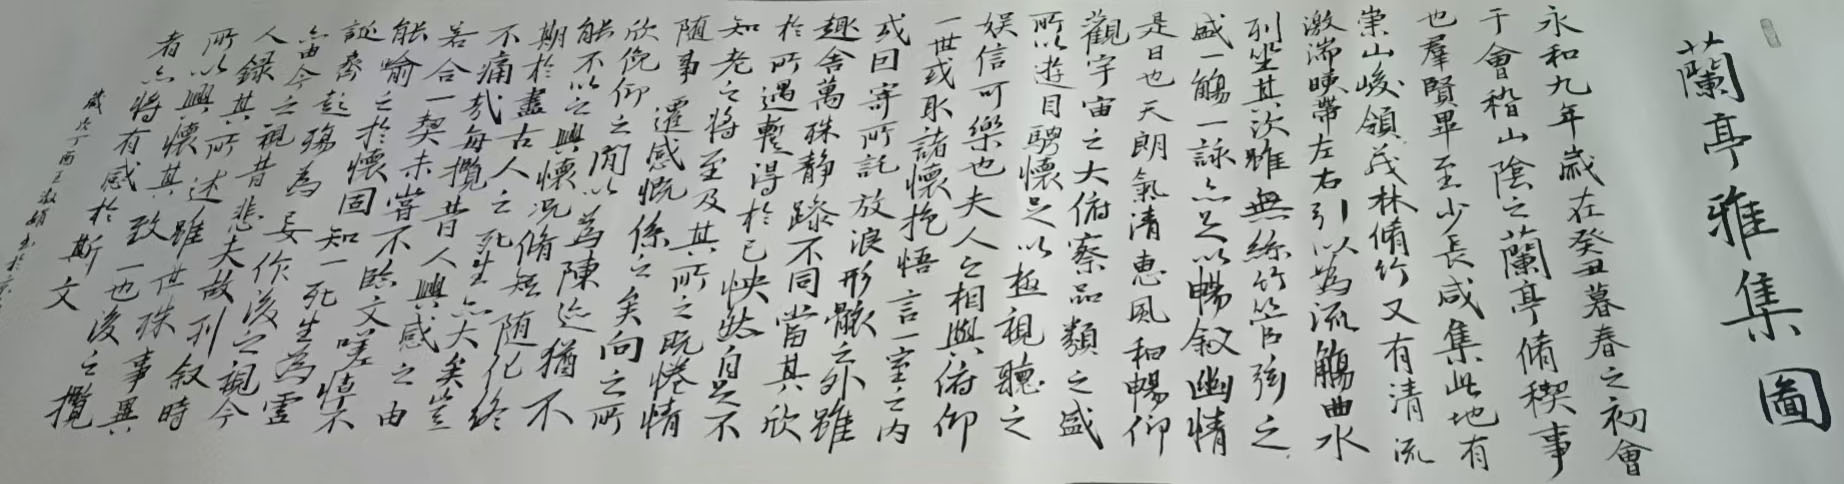 蘭亭雅集圖
永和九年歲在癸丑暮春之初會
于會稽山陰之蘭亭脩稧事
也羣賢畢至少長咸集此地有
崇山峻領茂林脩竹又有清流
激湍暎帶左右引以為流觴曲水
列坐其次雖無絲竹管弦之
盛一觴一詠亦足以暢敘幽情
是日也天朗氣清惠風和暢仰
觀宇宙之大俯察品類之盛
所以遊目騁懷足以極視聽之
娛信可樂也夫人之相與俯仰
一世或取諸懷抱悟言一室之內
或因寄所託放浪形骸之外雖
趣舍萬殊靜躁不同當其欣
於所遇蹔得於己怏然自足不
知老之將至及其所之既惓情
隨事遷感慨係之矣向之所
欣俛仰之閒以為陳迹猶不
能不以之興懷況脩短隨化終
期於盡古人云死生亦大矣豈
不痛哉每攬昔人興感之由
若合一契未嘗不臨文嗟悼不
能喻之於懷固知一死生為虛
誕齊彭殤為妄作後之視今
亦由今之視昔悲夫故列敘時
人錄其所述雖世殊事異
所以興懷其致一也後之攬
者亦將有感於斯文
歲次丁酉